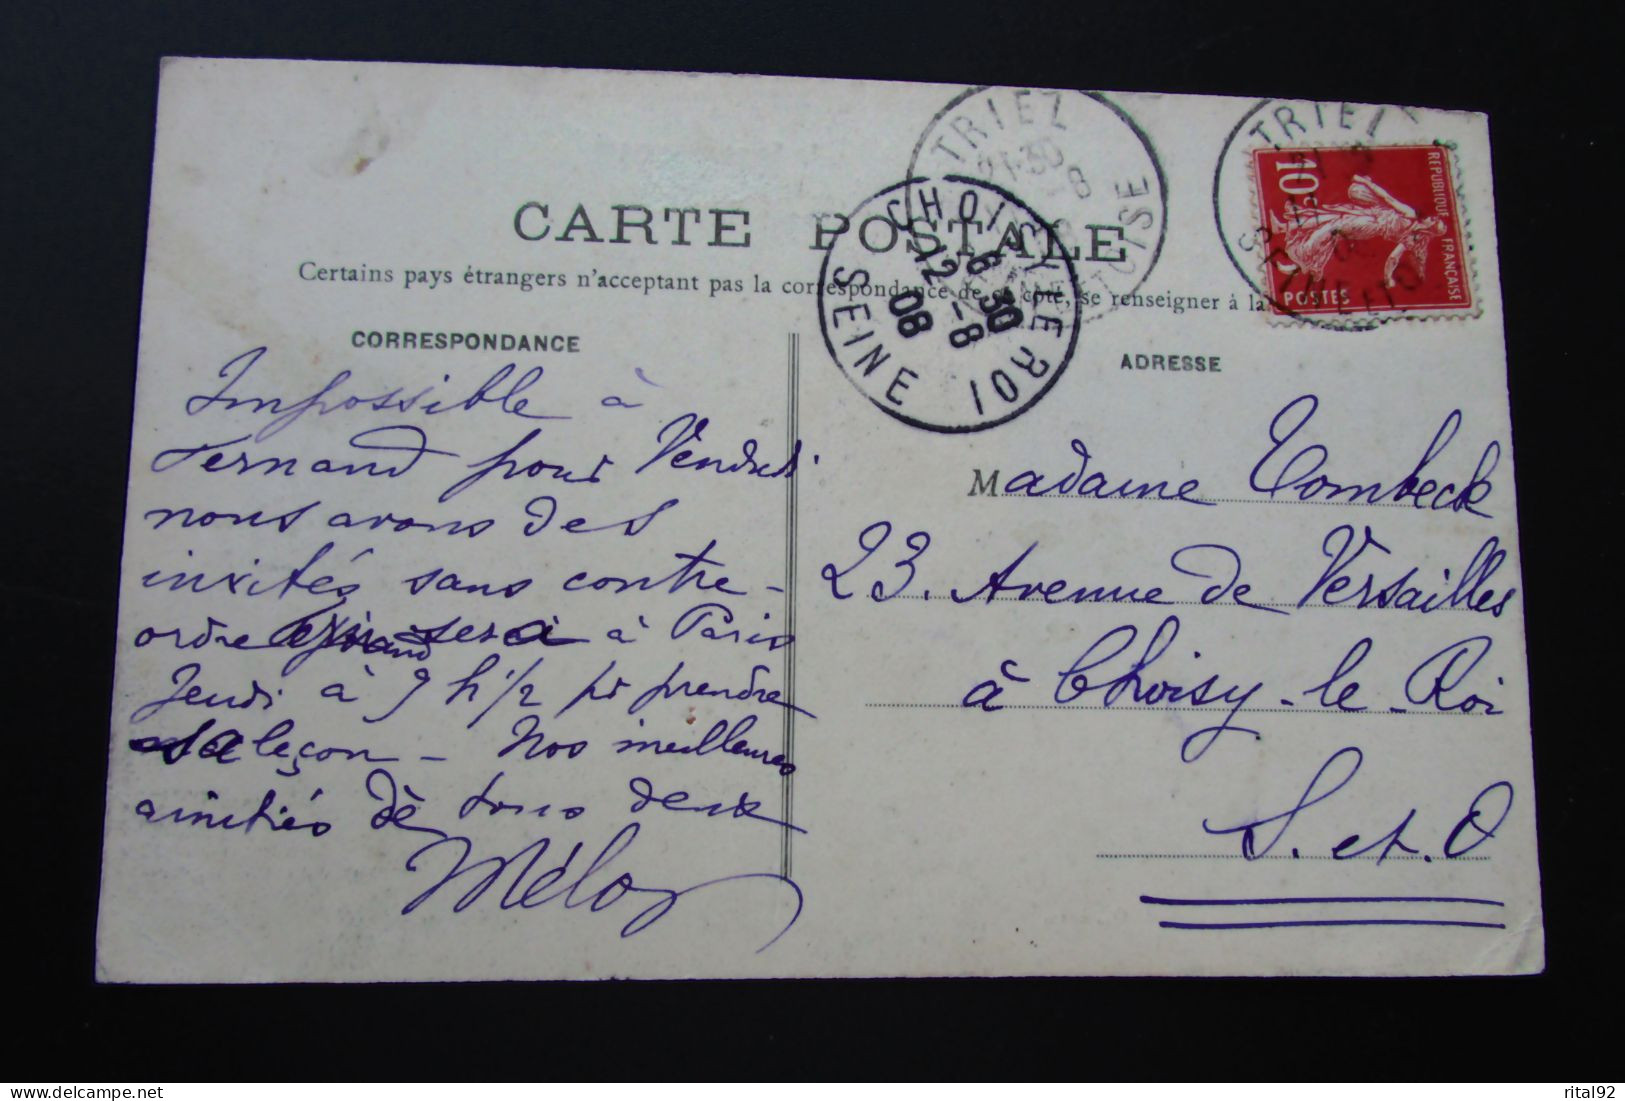 CARTE POSTALE
Certains pays étrangers n'acceptant pas la correspondance de ce côté, se renseigner à la
TRIEL
21 30
8
OISE
TRIEL
SEINE ET O
CHOISY LE ROI
6 30
12 - 8
08
SEINE
REPUBLIQUE FRANÇAISE
10c
POSTES
CORRESPONDANCE
Impossible à
Fernand pour Vendredi
nous avons des
invités sans contre-
ordre Fernand sera à Paris
Jeudi à 9 h 1/2 pr prendre
sa leçon - Nos meilleures
amitiés de tous deux
ADRESSE
Madame Tombeck
23. Avenue de Versailles
à Choisy-le-Roi
S. et. O
rital92